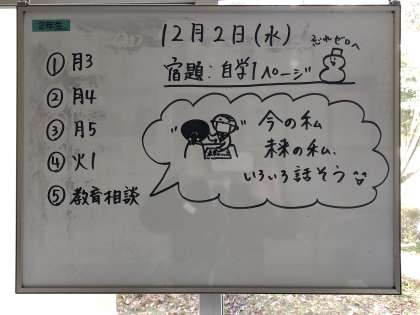 2年生
12月2日(水)
忘れゼロへ
宿題:自学1ページ
① 月3
② 月4
③ 月5
④ 火1
⑤ 教育相談
今の私
未来の私、
いろいろ話そう